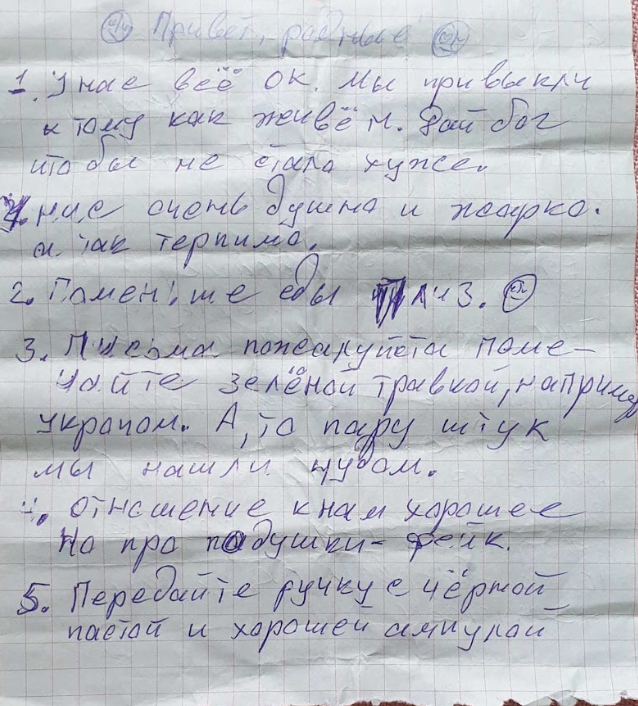 Привет, родные!
1. У нас всё ОК. Мы привыкли
к тому как живём. Дай бог
чтобы не стало хуже.
очень душно и жарко.
а так терпимо.
2. Поменьше еды ПЛИЗ.
3. Письма пожалуйста поме-
чайте зелёной травкой, например
укропом. А, то пару штук
мы нашли чудом.
4. отношение к нам хорошее
Но про подушки - фейк.
5. Передайте ручку с чёрной
пастой и хорошей ампулой